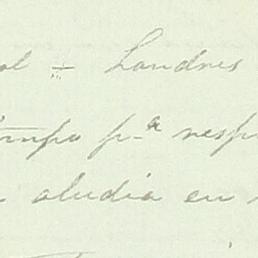 ol ÷ Londres
tiempo pª resp
aludia en